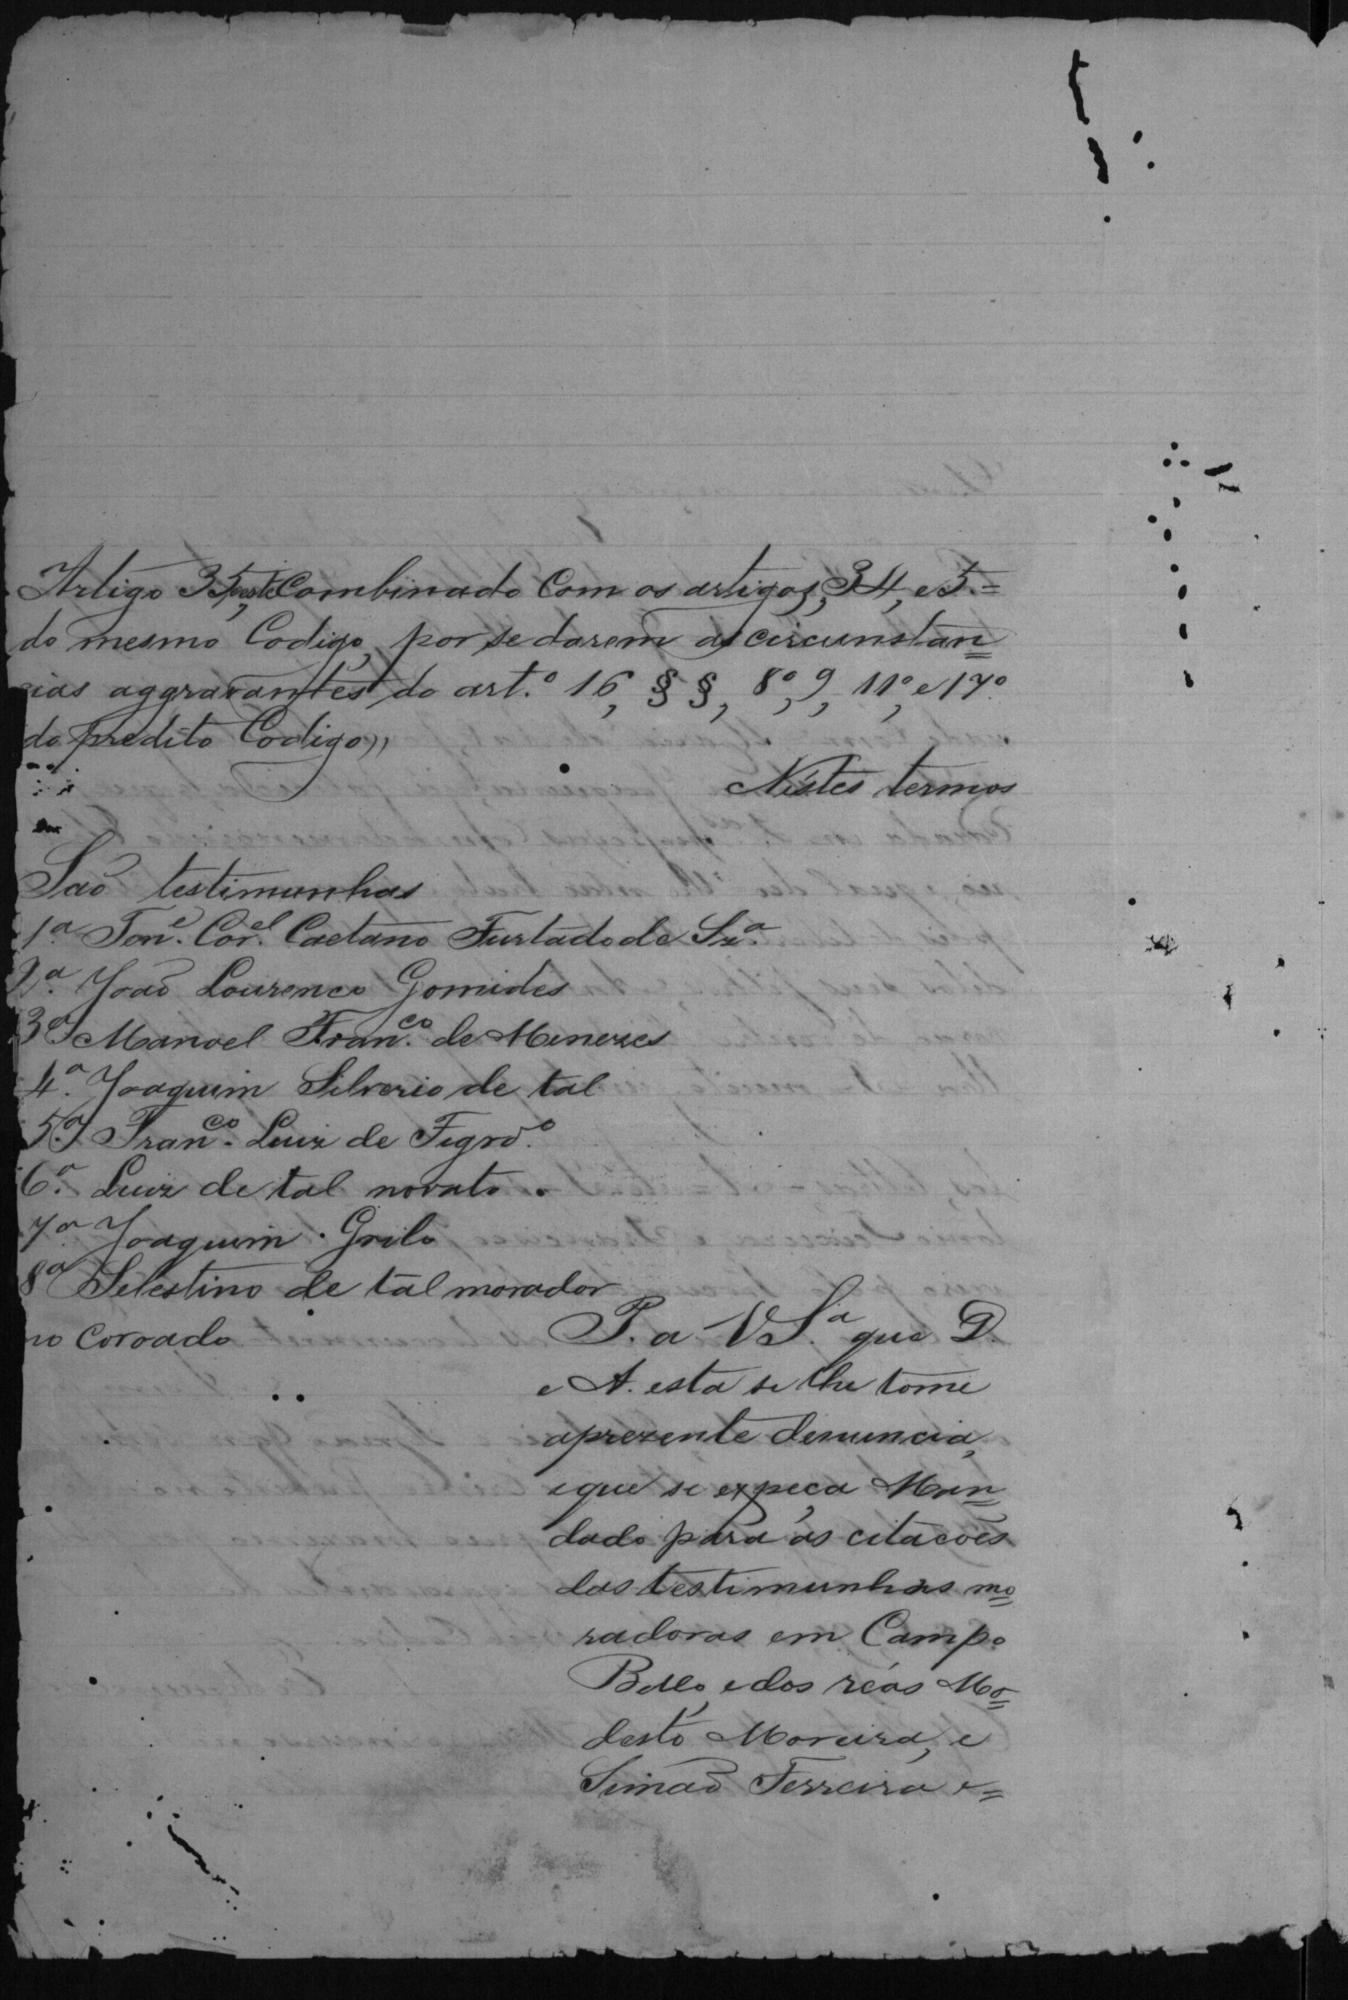 Artigo 35, Combinado Com os artigos, 34, e 5.=
do mesmo Codigo, por se darem as circunstan=
cias aggravantes do art.º 16, § §, 8º, 9, 11º, e 17º.
do predito Codigo,,
Nestes termos
São testimunhas
1.ª Tenᵉ. Corᵉˡ. Caetano Furtado de Szª.
2ª. João Lourenco Gomides
3ª Manoel Franᶜᵒ. de Menezes
4.ª Joaquim Silverio de tal
5ª Franᶜᵒ. Luiz de Figrdº.
6.ª Luiz de tal novato.
7ª Joaquim Grilo
8ª Selestino de tal morador
no coroado
P. a V Sª. que D.
e A. esta se lhe tome
aprezente denuncia,
e que se expeça Man=
dado para as citacões
das testimunhas mo=
radoras em Campo
Bello, e dos réos Mo=
desto Moreira, e
Simão Ferreira e=